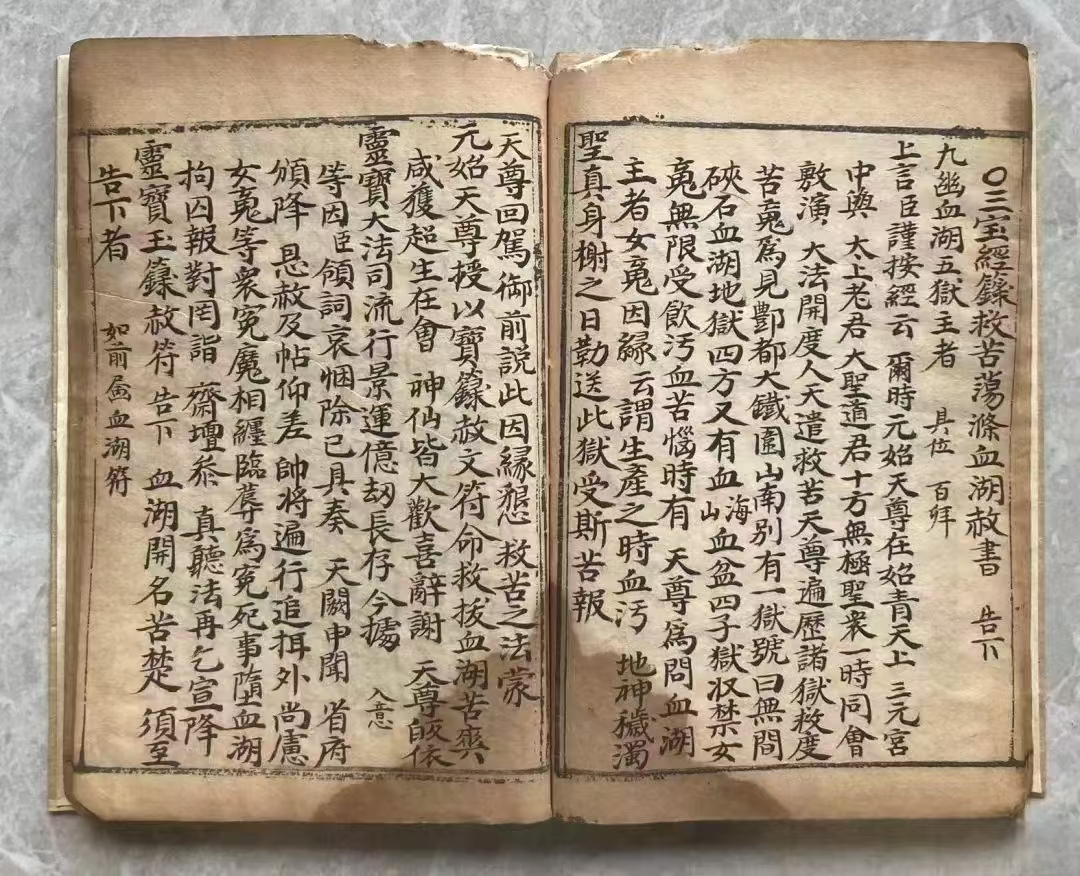 〇三宝經籙救苦蕩滌血湖赦書 告下
九幽血湖五獄主者 具位 百拜
上言臣謹按經云 爾時元始天尊在始青天上 三元宮
中與 太上老君大聖道君十方無極聖衆一時同會
敷演 大法開度人天遣救苦天尊遍歷諸獄救度
苦䰟爲見酆都大鐵圍山南別有一獄號曰無間
硤石血湖地獄四方又有血海山血盆四子獄収禁女
䰟無限受飲汚血苦惱時有 天尊爲問血湖
主者女䰟因緣云謂生產之時血汚 地神穢濁
聖真身榭之日勒送此獄受斯苦報
天尊回駕御前説此因緣懇 救苦之法蒙
元始天尊授以寶籙赦文符命救拔血湖苦爽
咸獲超生在會 神仙皆大歡喜辭謝 天尊皈依
靈寶大法司流行景運億刼長存今據 入意
等因臣領詞哀悃除已具奏 天闕申聞 省府
頒降 恳赦及帖仰差 帥將遍行追捐外尚慮
女䰟等衆冤魔相纏臨蓐爲冤死事墮血湖
拘囚報對罔詣 齋壇叅 真聽法再乞宣降
靈寶玉籙赦符 告下 血湖開名苦楚 須至
告下者 如前屆血湖符